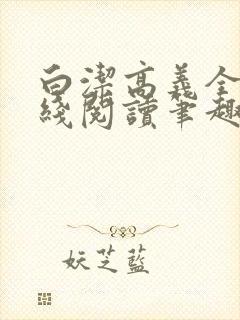 白潔高義全
綫閱讀筆趣
妖芝藍